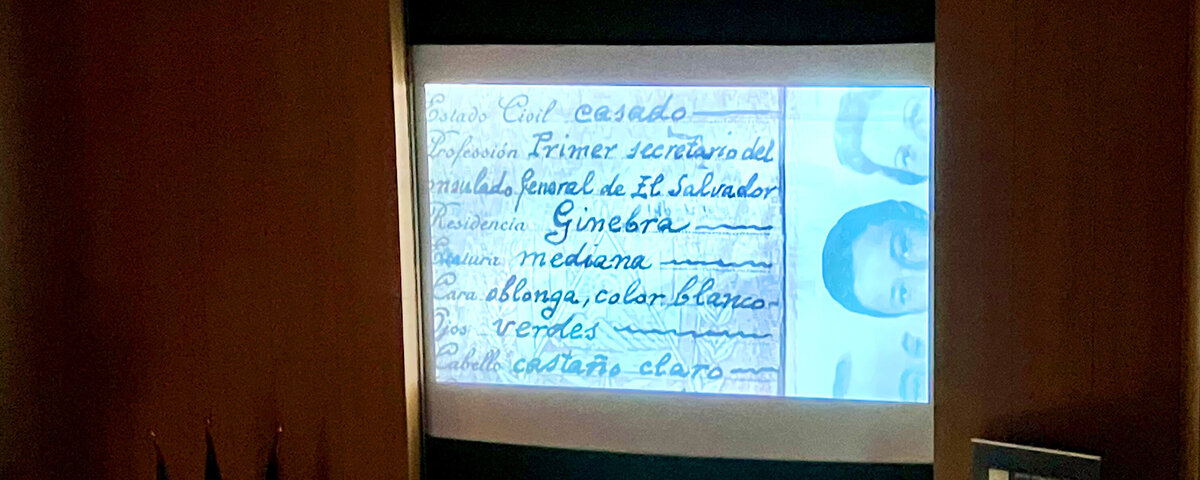 Estado Civil casado
Profesión Primer secretario del
onsulado General de El Salvador
Residencia Ginebra
Estatura mediana
Cara oblonga, color blanco-
Ojos verdes
Cabello castaño claro